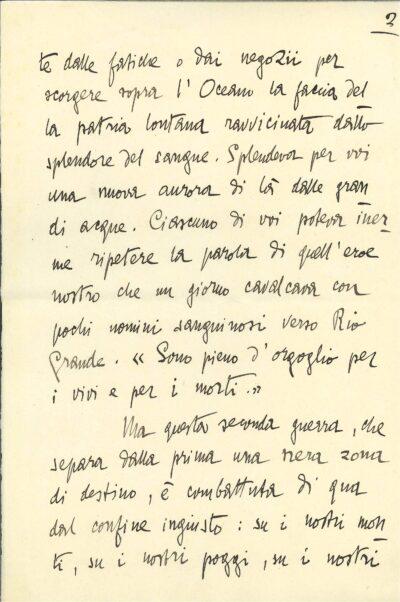 3
te dalle fatiche o dai negozii per
scorgere sopra l'Oceano la faccia del
la patria lontana ravvicinata dallo
splendore del sangue. Splendeva per voi
una nuova aurora di là dalle gran
di acque. Ciascuno di voi poteva iner
me ripetere la parola di quell'eroe
nostro che un giorno cavalcava con
pochi uomini sanguinosi verso Rio
Grande. « Sono pieno d'orgoglio per
i vivi e per i morti. »
Ma questa seconda guerra, che
separa dalla prima una nera zona
di destino, è combattuta di qua
dal confine ingiusto: su i nostri mon
ti, su i nostri poggi, su i nostri